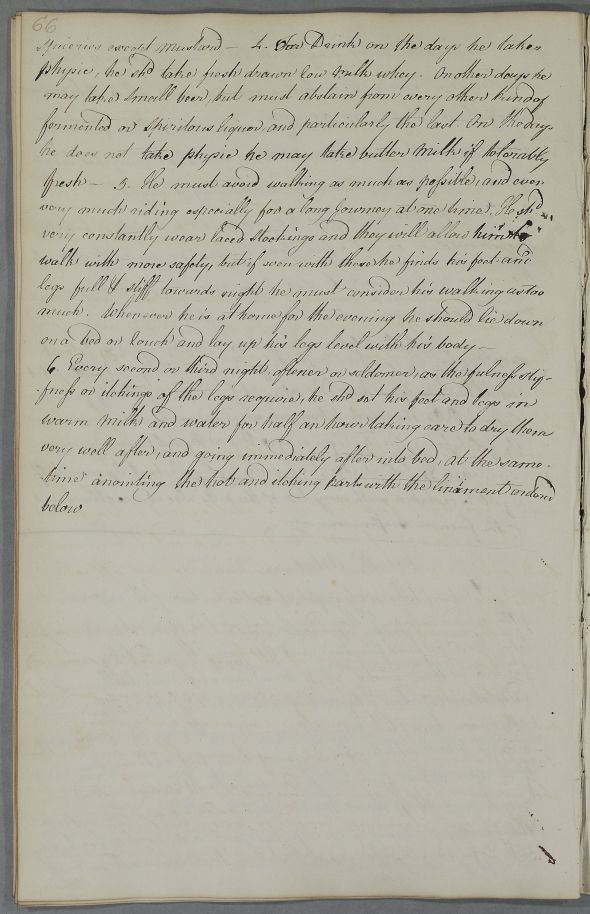 66
Spiceries except mustard — 4. For Drink on the days he takes
physic, he shd take fresh drawn low milk whey. On other days he
may take Small beer, but must abstain from every other kind of
fermented or Spiritous liquor, and particularly the last. On the days
he does not take physic he may take butter milk if tolerably
fresh — 5. He must avoid walking as much as possible, and even
very much riding especially for a long Journey at one time. He shd
very constantly wear laced Stockings and they will allow him to
walk with more safety, but if even with these he finds his feet and
legs full & stiff towards night he must consider his walking as too
much. Whenever he is at home for the evening he should lie down
on a bed or couch and lay up his legs level with his body —
6. Every second or third night, oftener or seldomer, as the fulness stif-
-fness or itchings of the legs require, he shd set his feet and legs in
warm milk and water for half an hour taking care to dry them
very well after, and going immediately after into bed, at the same
time anointing the hot and itching parts with the liniment ordered
below